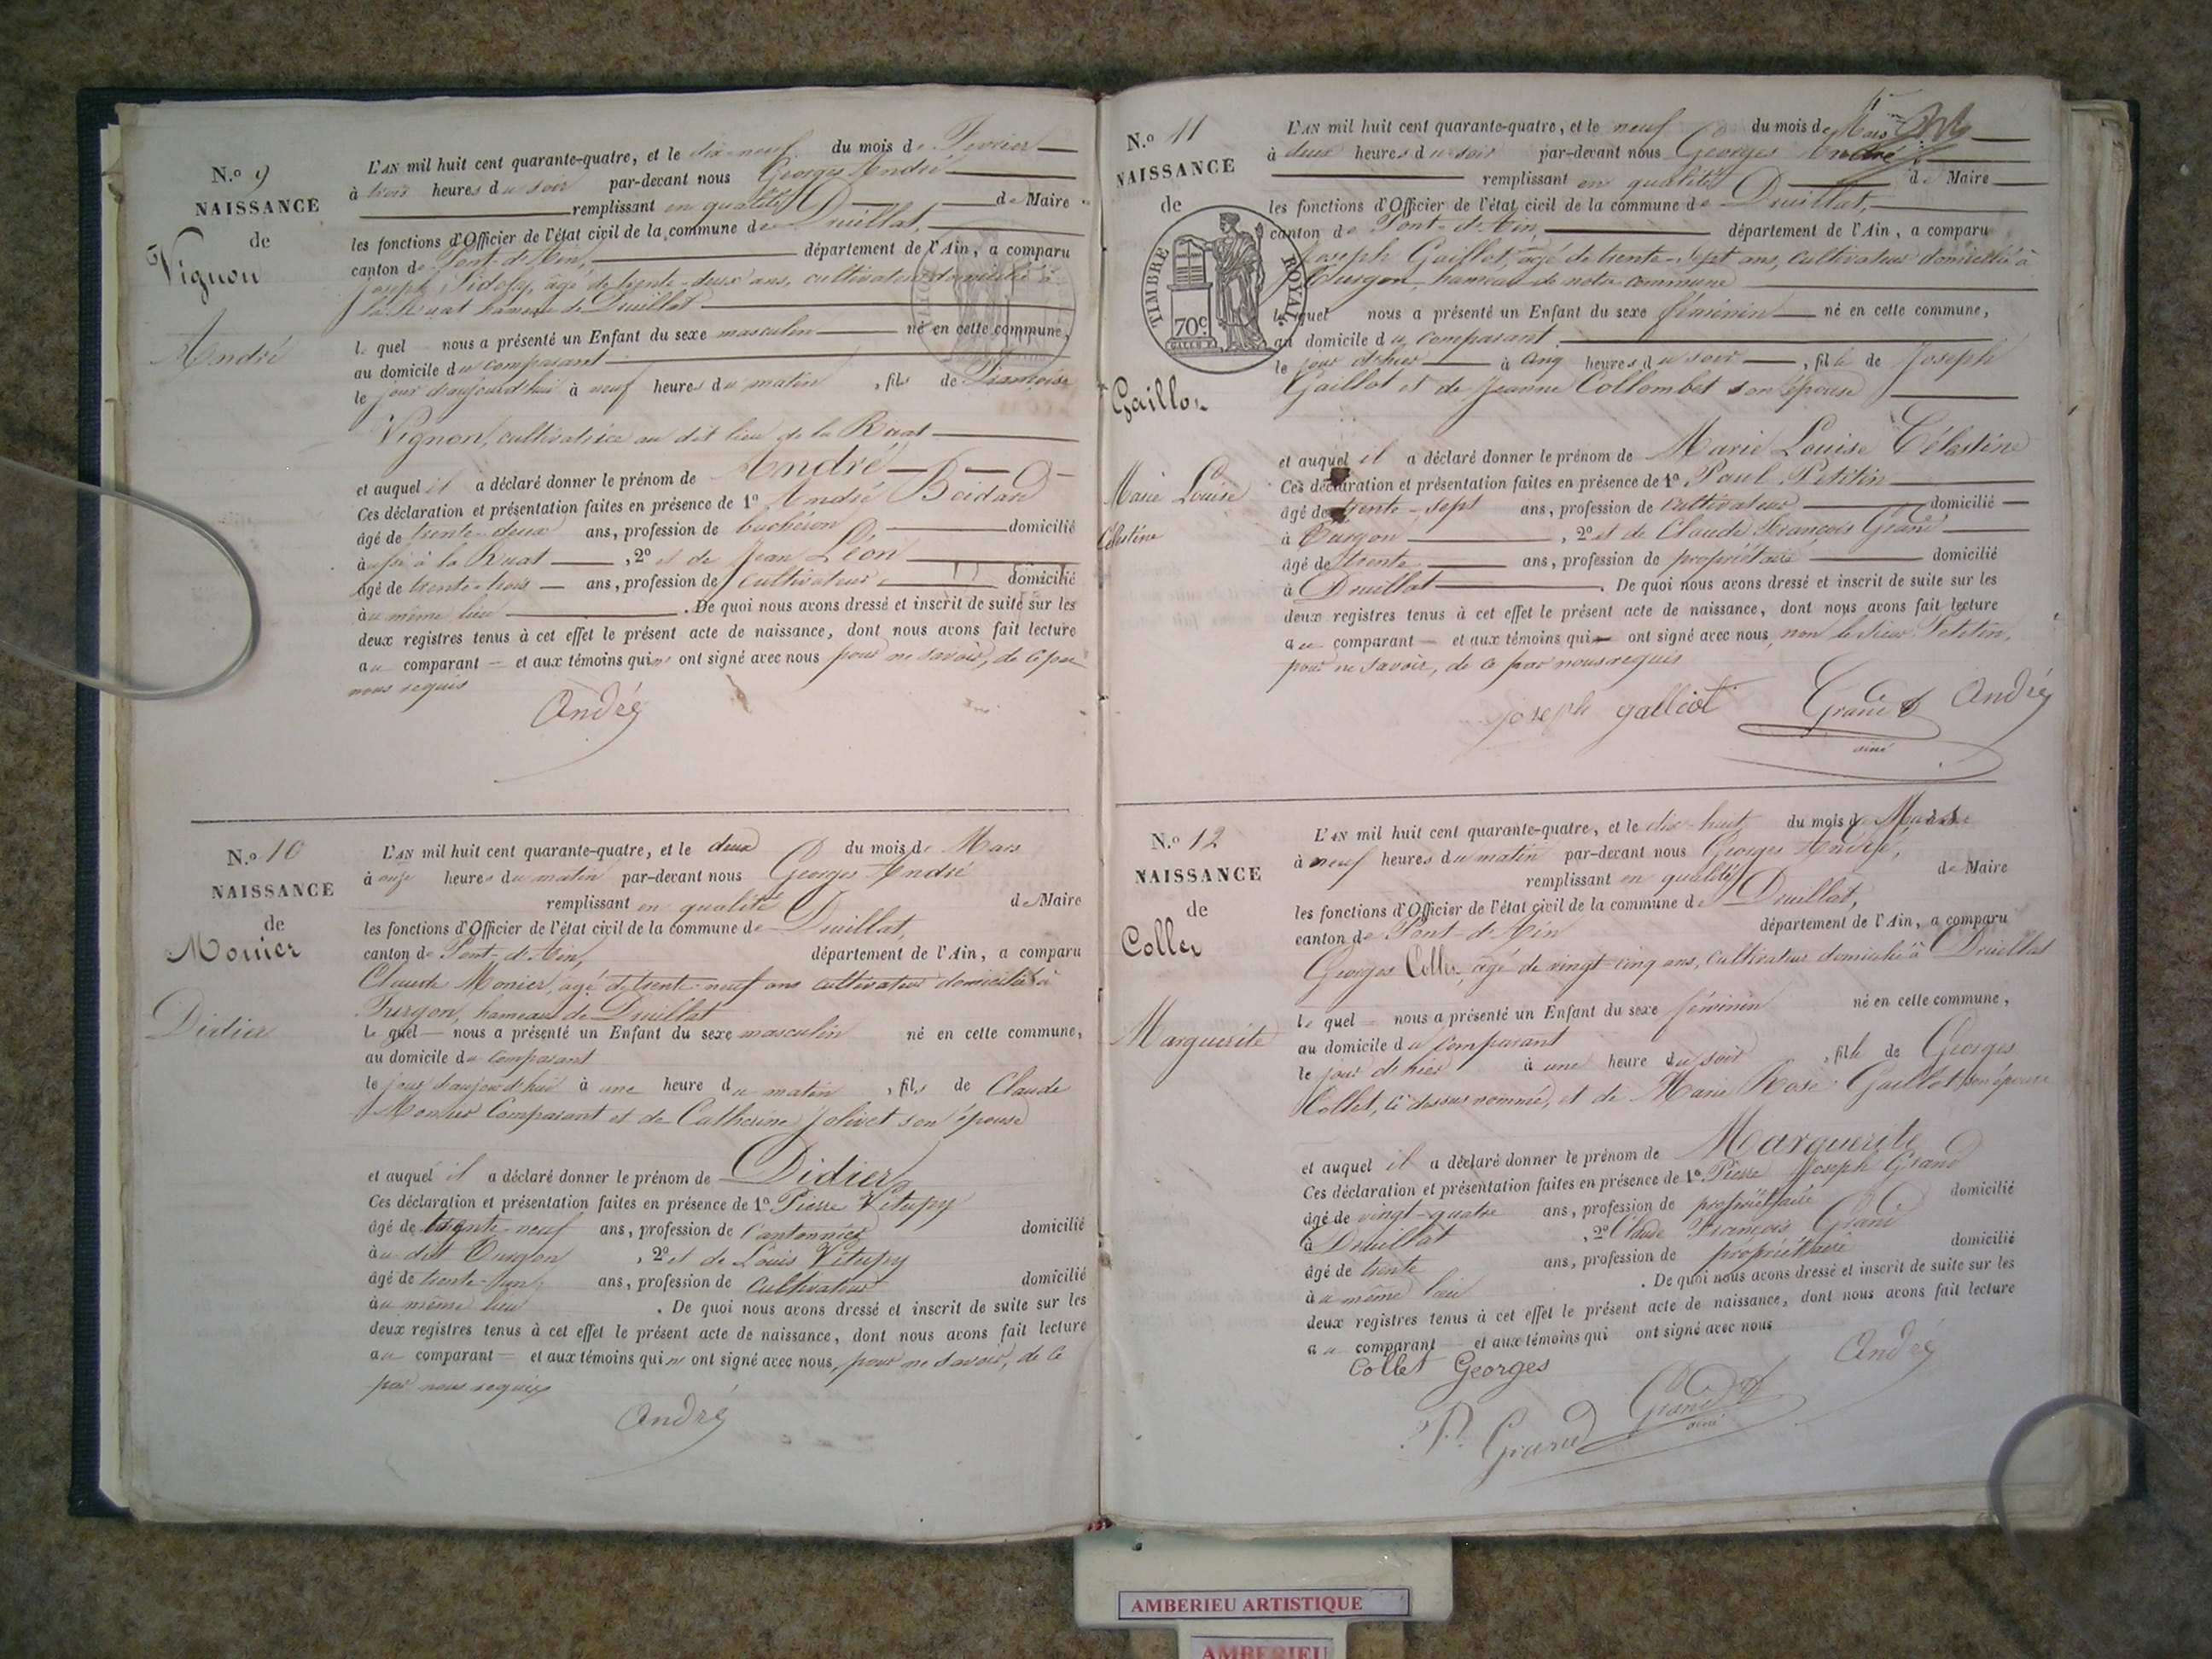 N.º 9
NAISSANCE
de
Vignon
André
L'AN mil huit cent quarante-quatre, et le dix-neuf du mois de Fevrier
à trois heures du soir par-devant nous Georges André
remplissant en qualité de Maire
les fonctions d'Officier de l'état civil de la commune de Druillat,
canton de Pont-d'Ain, département de l'Ain, a comparu
Joseph Sidofy, âgé de trente-deux ans, cultivateur domicilié à
la Ruat hameau de Druillat
le quel nous a présenté un Enfant du sexe masculin né en cette commune,
au domicile du comparant
le jour d'aujourd'hui à neuf heures du matin, fils de Françoise
Vignon, cultivatrice au dit lieu de la Ruat
et auquel il a déclaré donner le prénom de André
Ces déclaration et présentation faites en présence de 1º André Boidard
âgé de trente-deux ans, profession de bucheron domicilié
à la Ruat, 2º et de Jean Léon
âgé de trente-trois ans, profession de cultivateur domicilié
au même lieu. De quoi nous avons dressé et inscrit de suite sur les
deux registres tenus à cet effet le présent acte de naissance, dont nous avons fait lecture
au comparant et aux témoins qui n' ont signé avec nous pour ne savoir, de ce par
nous requis
André
N.º 10
NAISSANCE
de
Monier
Didier
L'AN mil huit cent quarante-quatre, et le deux du mois de Mars
à onze heures du matin par-devant nous Georges André
remplissant en qualité de Maire
les fonctions d'Officier de l'état civil de la commune de Druillat,
canton de Pont-d'Ain, département de l'Ain, a comparu
Claude Monier, âgé de trente-neuf ans cultivateur domicilié à
Turgon, hameau de Druillat
le quel nous a présenté un Enfant du sexe masculin né en cette commune,
au domicile du comparant
le jour d'aujourd'hui à une heure du matin, fils de Claude
Monier Comparant et de Catherine Jolivet son épouse
et auquel il a déclaré donner le prénom de Didier
Ces déclaration et présentation faites en présence de 1º Pierre Vitupy
âgé de trente-neuf ans, profession de Cantonnier domicilié
au dit Turgon, 2º et de Louis Vitupy
âgé de trente- ans, profession de Cultivateur domicilié
au même lieu. De quoi nous avons dressé et inscrit de suite sur les
deux registres tenus à cet effet le présent acte de naissance, dont nous avons fait lecture
au comparant et aux témoins qui n' ont signé avec nous, pour ne savoir, de ce
par nous requis
André
N.º 11
NAISSANCE
de
TIMBRE ROYAL
70c
Gaillot
Marie Louise
Célestine
L'AN mil huit cent quarante-quatre, et le neuf du mois de Mars
à deux heures du soir par-devant nous Georges André
remplissant en qualité de Maire
les fonctions d'Officier de l'état civil de la commune de Druillat,
canton de Pont-d'Ain, département de l'Ain, a comparu
Joseph Gaillot, âgé de trente-sept ans, cultivateur domicilié à
Turgon, hameau de notre commune
le quel nous a présenté un Enfant du sexe féminin né en cette commune,
au domicile du comparant
le jour d'hier à cinq heures du soir, fille de Joseph
Gaillot et de Jeanne Collombet son épouse
et auquel il a déclaré donner le prénom de Marie Louise Célestine
Ces déclaration et présentation faites en présence de 1º Paul Petitin
âgé de trente-sept ans, profession de cultivateur domicilié
à Turgon, 2º et de Claude François Grand
âgé de trente ans, profession de propriétaire domicilié
à Druillat. De quoi nous avons dressé et inscrit de suite sur les
deux registres tenus à cet effet le présent acte de naissance, dont nous avons fait lecture
au comparant et aux témoins qui ont signé avec nous, non le sieur Petitin,
pour ne savoir, de ce par nous requis
joseph galliot Grand André
ainé
N.º 12
NAISSANCE
de
Collet
Marguerite
L'AN mil huit cent quarante-quatre, et le dix-huit du mois de Mars
à neuf heures du matin par-devant nous Georges André,
remplissant en qualité de Maire
les fonctions d'Officier de l'état civil de la commune de Druillat,
canton de Pont-d'Ain département de l'Ain, a comparu
Georges Collet, âgé de vingt-cinq ans, cultivateur domicilié à Druillat
le quel nous a présenté un Enfant du sexe féminin né en cette commune,
au domicile du comparant
le jour d'hier à une heure du soir, fille de Georges
Collet, ci-dessus nommé, et de Marie Rose Gaillot son épouse
et auquel il a déclaré donner le prénom de Marguerite
Ces déclaration et présentation faites en présence de 1º Pierre Joseph Grand
âgé de vingt-quatre ans, profession de propriétaire domicilié
à Druillat, 2º Claude François Grand
âgé de trente ans, profession de propriétaire domicilié
au même lieu. De quoi nous avons dressé et inscrit de suite sur les
deux registres tenus à cet effet le présent acte de naissance, dont nous avons fait lecture
au comparant et aux témoins qui ont signé avec nous
Collet Georges André
P. Grand Grand
ainé
AMBERIEU ARTISTIQUE
AMBERIEU